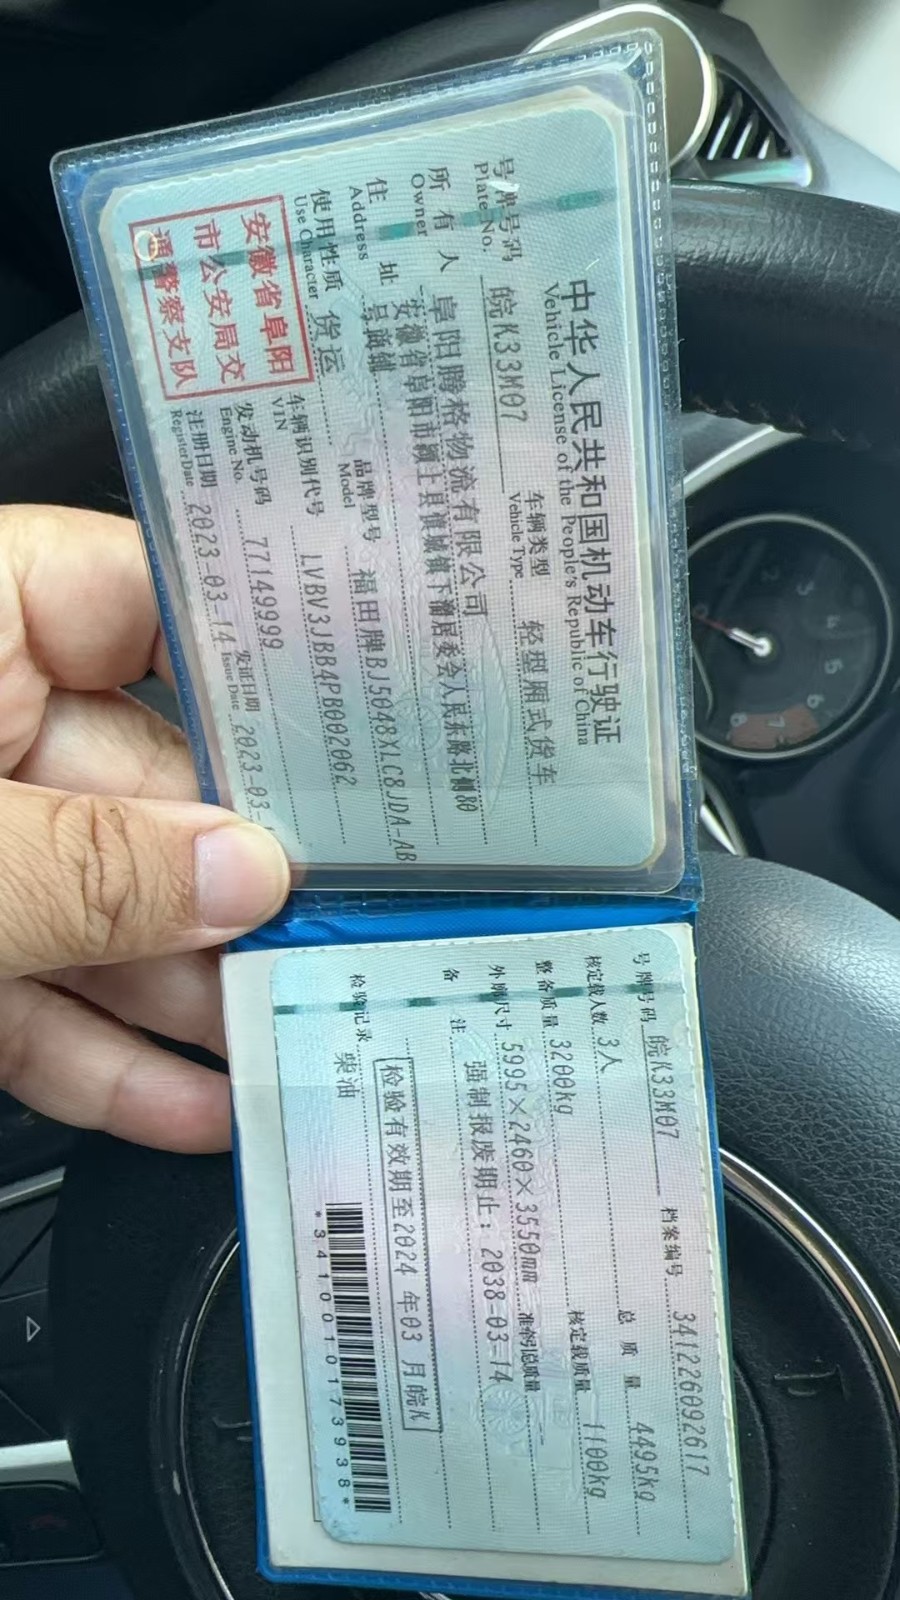 中华人民共和国机动车行驶证
Vehicle License of the People's Republic of China
号牌号码 皖K33M07 车辆类型 轻型厢式货车
Plate No. Vehicle Type
所有人 阜阳腾格物流有限公司
Owner
住址 安徽省阜阳市颍上县慎城镇下 居委会人民东路北侧80
Address 号商铺
使用性质 货运 品牌型号 福田牌BJ5048XLC8JDA-AB
Use Character Model
安徽省阜阳
市公安局交
通警察支队
车辆识别代号 LVBV3JBB4PB002062
VIN
发动机号码 77149999
Engine No.
注册日期 2023-03-14 发证日期 2023-03-
Register Date Issue Date
号牌号码 皖K33M07 档案编号 341226092617
核定载人数 3人 总质量 4495kg
整备质量 3200kg 核定载质量 1100kg
外廓尺寸 5995×2460×3550mm 准牵引总质量 --
备注 强制报废期止：2038-03-14
检验有效期至2024年03月皖K
检验记录 柴油
*3410010173938*